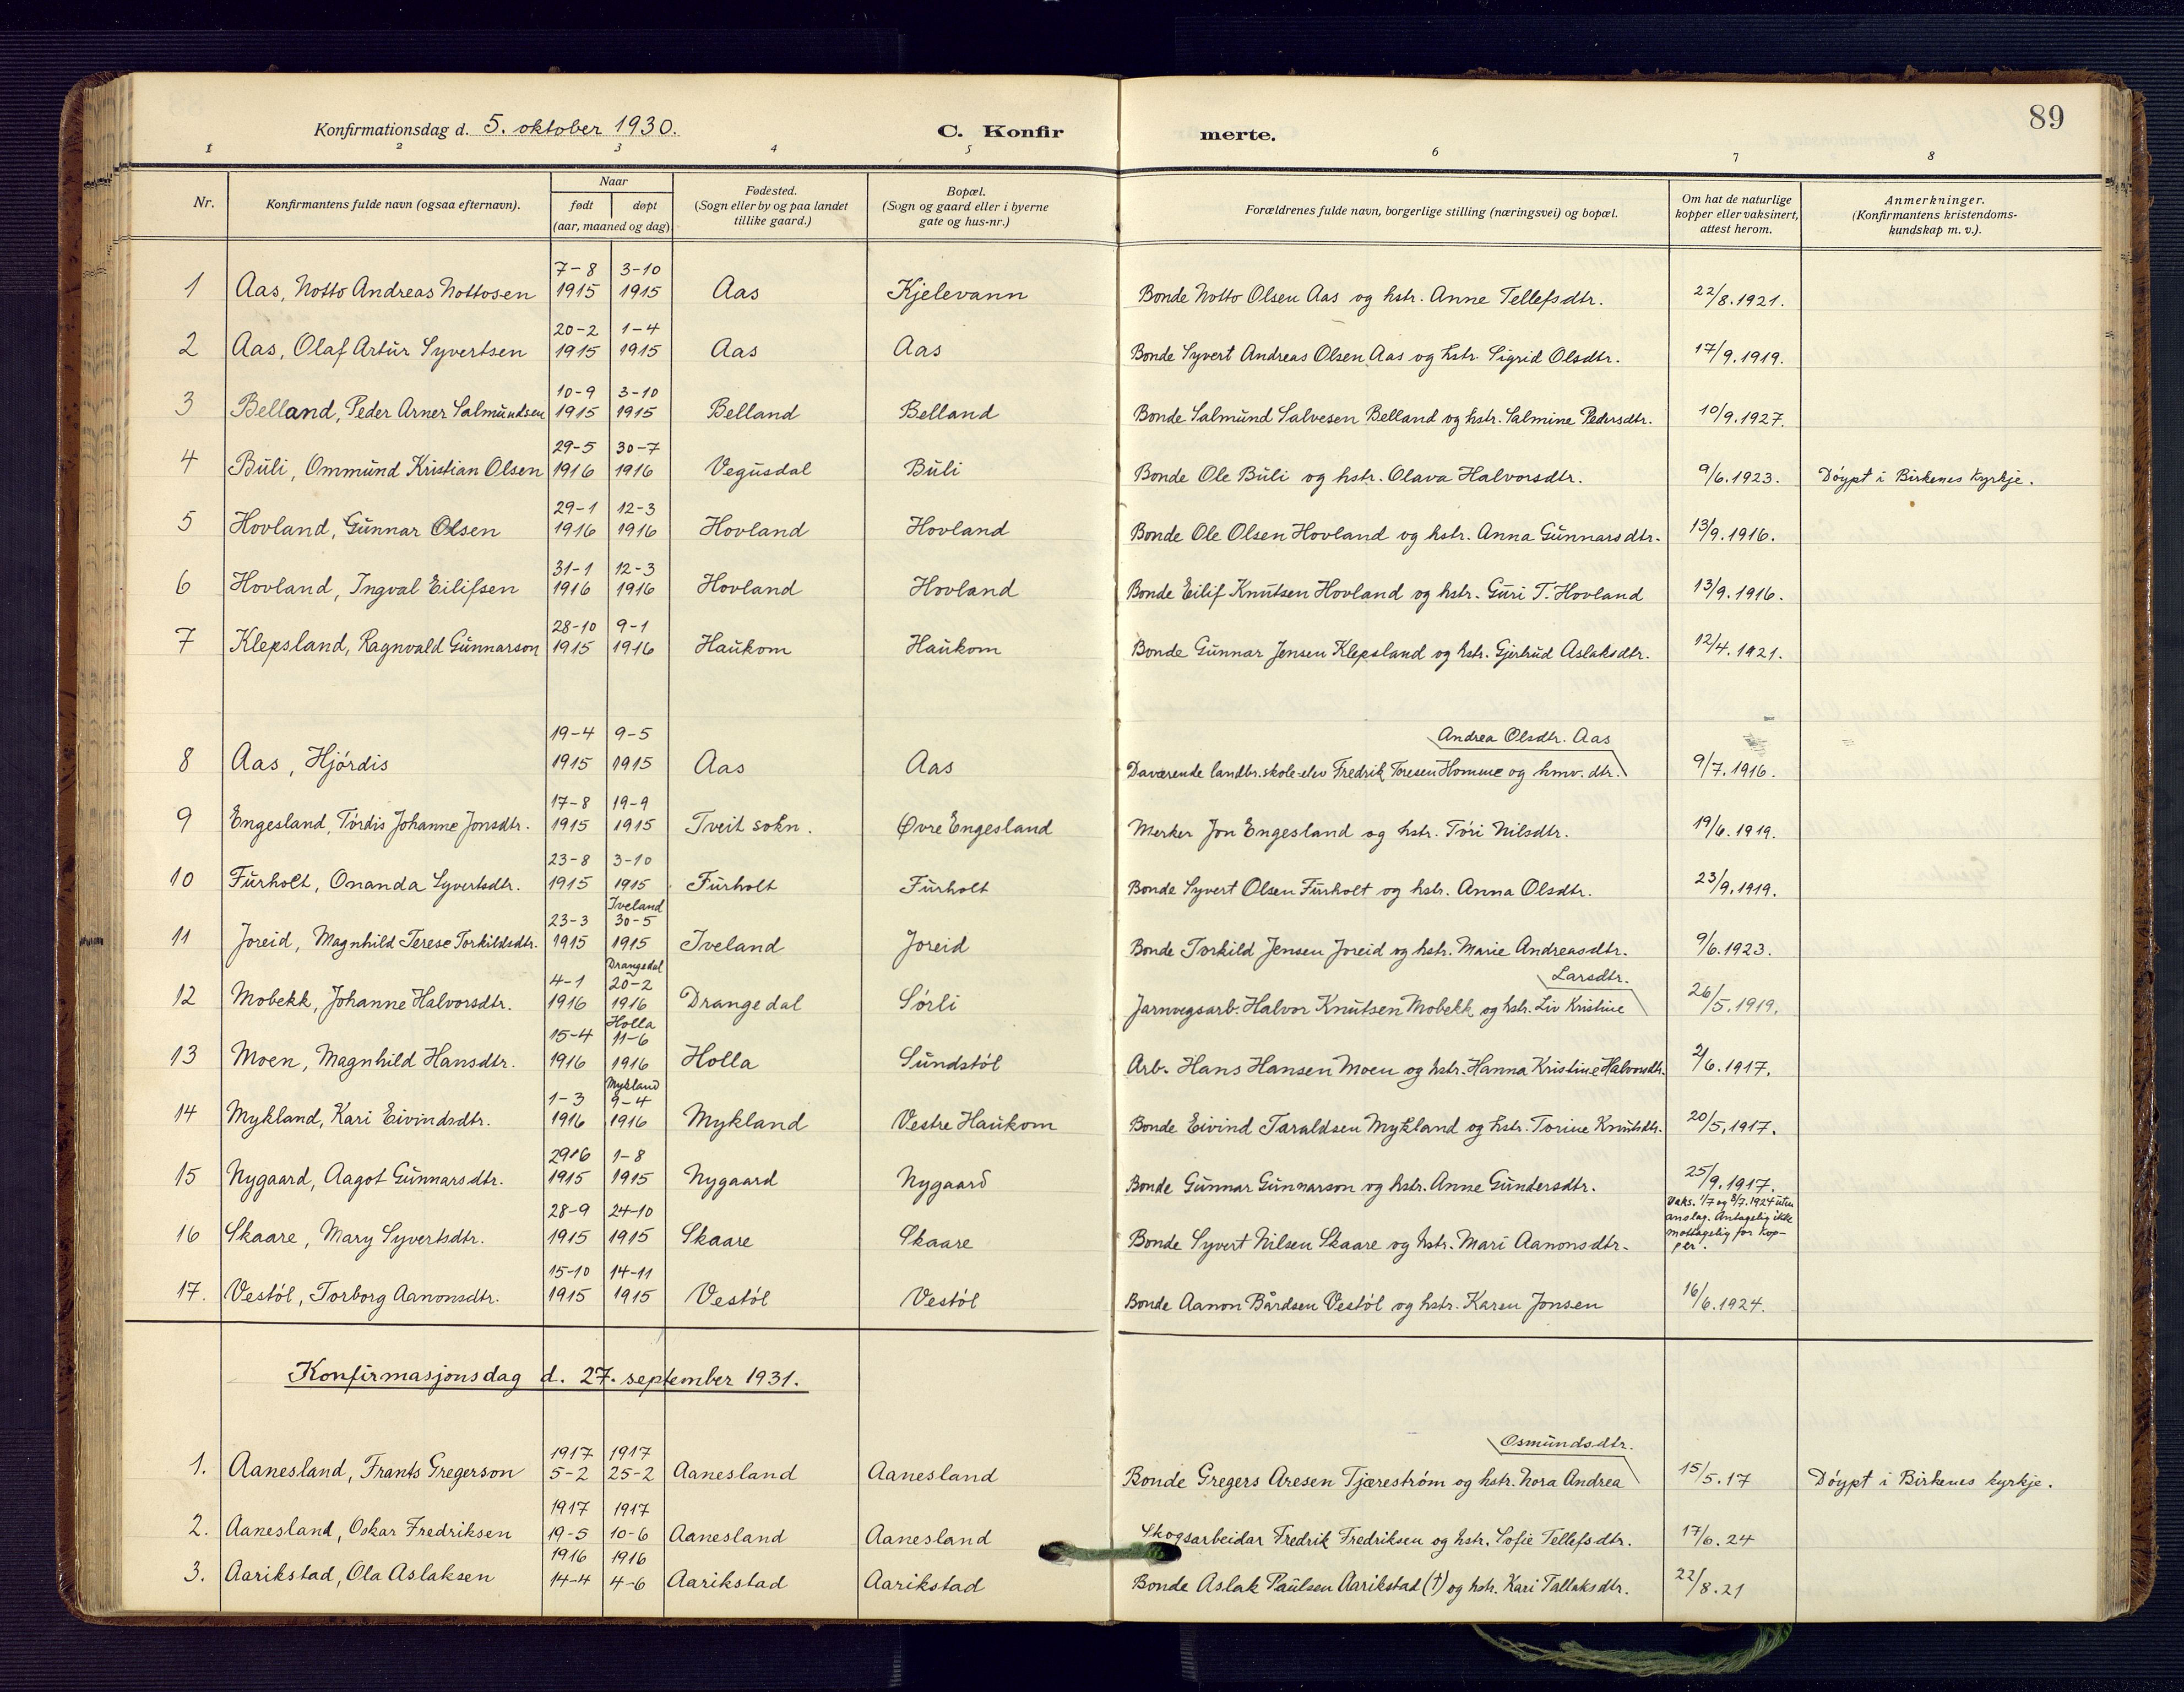 89
Konfirmationsdag d. 5. oktober 1930. C. Konfirmerte.
1 2 3 4 5 6 7 8
Nr. Konfirmantens fulde navn (ogsaa efternavn). Naar født døpt (aar, maaned og dag) Fødested. (Sogn eller by og paa landet tillike gaard.) Bopæl. (Sogn og gaard eller i byerne gate og hus-nr.) Forældrenes fulde navn, borgerlige stilling (næringsvei) og bopæl. Om hat de naturlige kopper eller vaksinert, attest herom. Anmerkninger. (Konfirmantens kristendomskundskap m. v.).
1 Aas, Notto Andreas Nottosen 7-8 1915 3-10 1915 Aas Kjelevann Bonde Notto Olsen Aas og hstr. Anne Tellefsdtr. 22/8.1921.
2 Aas, Olaf Artur Syvertsen 20-2 1915 1-4 1915 Aas Aas Bonde Syvert Andreas Olsen Aas og hstr. Sigrid Olsdtr. 17/9.1919.
3 Belland, Peder Arner Salmundsen 10-9 1915 3-10 1915 Belland Belland Bonde Salmund Salvesen Belland og hstr. Salmine Pedersdtr. 10/9.1927.
4 Buli, Ommund Kristian Olsen 29-5 1916 30-7 1916 Vegusdal Buli Bonde Ole Buli og hstr. Olava Halvorsdtr. 9/6.1923. Döypt i Birkenes Kyrkje.
5 Hovland, Gunnar Olsen 29-1 1916 12-3 1916 Hovland Hovland Bonde Ole Olsen Hovland og hstr. Anna Gunnarsdtr. 13/9.1916.
6 Hovland, Ingval Eilifsen 31-1 1916 12-3 1916 Hovland Hovland Bonde Eilif Knutsen Hovland og hstr. Guri T. Hovland 13/9.1916.
7 Klepsland, Ragnvald Gunnarson 28-10 1915 9-1 1916 Haukom Haukom Bonde Gunnar Jensen Klepsland og hstr. Gjertrud Aslaksdtr. 12/4.1921.
8 Aas, Hjördis 19-4 1915 9-5 1915 Aas Aas Daværende landbr.skole-elev Fredrik Toresen Homme og hmv. dtr. Andrea Olsdtr. Aas 9/7.1916.
9 Engesland, Tordis Johanne Jonsdtr. 17-8 1915 19-9 1915 Tveit sokn. Øvre Engesland Merker Jon Engesland og hstr. Töri Nilsdtr. 19/6.1919.
10 Furholt, Onanda Syvertsdtr. 23-8 1915 3-10 1915 Furholt Furholt Bonde Syvert Olsen Furholt og hstr. Anna Olsdtr. 23/9.1919.
11 Joreid, Magnhild Terese Torkildsdtr. 23-3 1915 Iveland 30-5 1915 Iveland Joreid Bonde Torkild Jensen Joreid og hstr. Marie Andreasdtr. 9/6.1923.
12 Mobekk, Johanne Halvorsdtr. 4-1 1916 Drangedal 20-2 1916 Drangedal Sörli Jarnvegsarb. Halvor Knutsen Mobekk og hstr. Liv Kristine Larsdtr. 26/5.1919.
13 Moen, Magnhild Hansdtr. 15-4 1916 Holla 11-6 1916 Holla Sundstöl Arb. Hans Hansen Moen og hstr. Hanna Kristine Halvorsdtr. 2/6.1917.
14 Mykland, Kari Eivindsdtr. 1-3 1916 Mykland 9-4 1916 Mykland Vestre Haukom Bonde Eivind Taraldsen Mykland og hstr. Torine Knutsdtr. 20/5,1917.
15 Nygaard, Aagot Gunnarsdtr. 29/6 1915 1-8 1915 Nygaard Nygaard Bonde Gunnar Gunnarson og hstr. Anne Gundersdtr. 25/9.1917.
16 Skaare, Mary Syvertsdtr. 28-9 1915 24-10 1915 Skaare Skaare Bonde Syvert Nilsen Skaare og hstr. Mari Aanonsdtr. Vaks. 1/7 og 8/7.1924 uten anslag. Antagelig ikke mottagelig for kopper.
17. Vestöl, Torborg Aanonsdtr. 15-10 1915 14-11 1915 Vestöl Vestöl Bonde Aanon Bårdsen Vestöl og hstr. Karen Jonsen 16/6.1924.
Konfirmasjonsdag d. 27. september 1931.
1. Aanesland, Frants Gregerson 1917 5-2 1917 25-2 Aanesland Aanesland Bonde Gregers Aresen Tjæreström og hstr. Nora Andrea Osmundsdtr. 15/5.17 Döypt i Birkenes kyrkje.
2. Aanesland, Oskar Fredriksen 1917 19-5 1917 10-6 Aanesland Aanesland Skogsarbeidar Fredrik Fredriksen og hstr. Sofie Tellefsdtr. 17/6.24
3. Aarikstad, Ola Aslaksen 1916 14-4 1916 4-6 Aarikstad Aarikstad Bonde Aslak Paulsen Aarikstad (†) og hstr. Kari Tallaksdtr. 22/8.21